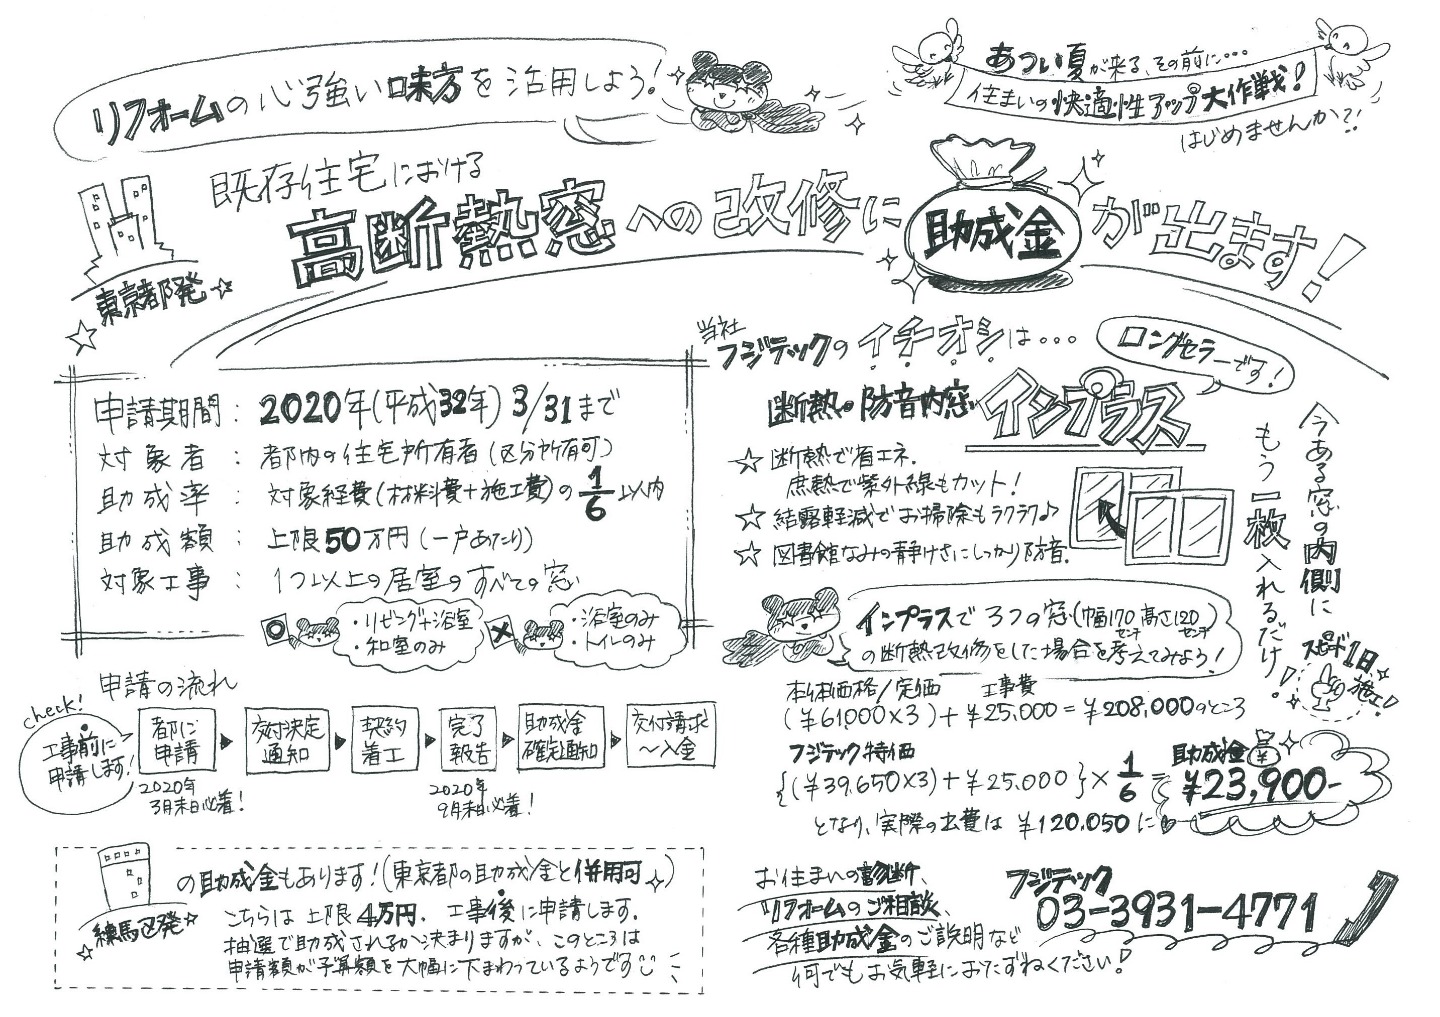 リフォームの心強い味方を活用しよう!
あつい夏が来る、その前に…
住まいの快適性アップ大作戦!
はじめませんか?!
既存住宅における
高断熱窓への改修に助成金が出ます!
東京都発☆
申請期間：2020年(平成32年) 3/31まで
対象者：都内の住宅所有者(区分所有可)
助成率：対象経費(材料費+施工費)の1/6以内
助成額：上限50万円(一戸あたり)
対象工事：1つ以上の居室のすべての窓
○
・リビング+浴室
・和室のみ
×
・浴室のみ
・トイレのみ
申請の流れ
check!
工事前に
申請します!
都に
申請
▶
交付決定
通知
▶
契約
着工
▶
完了
報告
▶
助成金
確定通知
▶
交付請求
〜入金
2020年
3月末日必着!
2020年
9月末日必着!
練馬区発☆
の助成金もあります!(東京都の助成金と併用可)
こちらは上限4万円、工事後に申請します。
抽選で助成されるか決まりますが、このところは
申請額が予算額を大幅に下まわっているようです
当社
フジテックのイチオシは…
ロングセラーです!
断熱・防音内窓 インプラス
☆断熱で省エネ。
遮熱で紫外線もカット!
☆結露軽減でお掃除もラクラク♪
☆図書館なみの静けさにしっかり防音。
今ある窓の内側に
もう一枚入れるだけ!
スピード1日施工!
インプラスで3つの窓(幅170センチ高さ120センチ)
の断熱改修をした場合を考えてみよう!
本体価格/定価 工事費
(¥61,000×3)+¥25,000=¥208,000のところ
フジテック特価
{(¥39,650×3)+¥25,000}×1/6=
助成金
¥23,900-
となり、実際の出費は ¥120,050に♥
お住まいの診断、
リフォームのご相談、
各種助成金のご説明など
何でもお気軽におたずねください!
フジテック
03-3931-4771